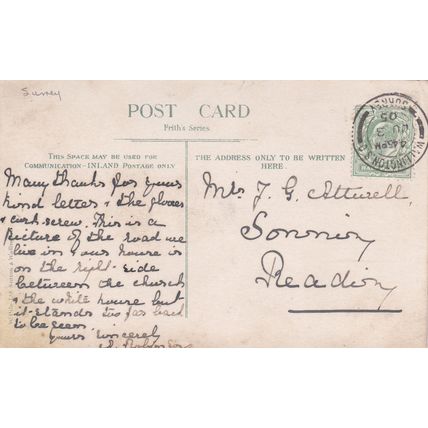 Surrey
POST CARD
Frith's Series.
THIS SPACE MAY BE USED FOR
COMMUNICATION—INLAND POSTAGE ONLY
THE ADDRESS ONLY TO BE WRITTEN
HERE.
Many thanks for your
kind letter & the gloves
& cork-screw. This is a
picture of the road we
live in & our house is
on the right side
between the church
& the white house but
it stands too far back
to be seen.
yours sincerely
Mrs J. G. Attwell,
Sonning
Reading
WALLINGTON S.O.
4.45PM
JU 3
05
SURREY